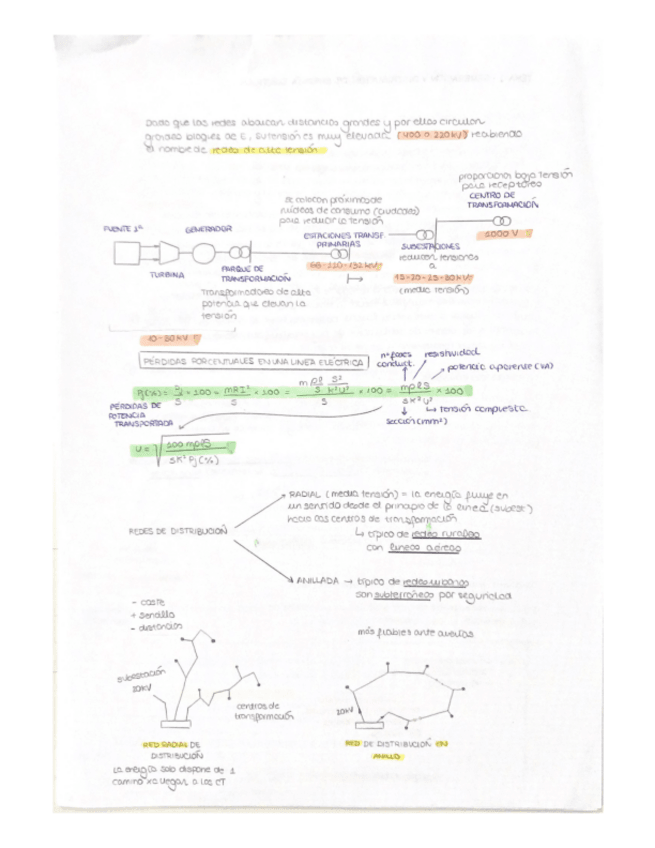 Dado que las redes abarcan distancias grandes y por ellas circulan
grandes bloques de E, su tensión es muy elevada (400 o 220 kV) recibiendo
el nombre de redes de alta tensión
proporcionar baja tensión
para receptores
CENTRO DE
TRANSFORMACIÓN
1000 V
se colocan próximas de
núcleos de consumo (ciudades)
para reducir la tensión
ESTACIONES TRANSF.
PRIMARIAS
66-110-132 kV
SUBESTACIONES
reducen tensiones
a
15-20-25-30 kV
(media tensión)
FUENTE 1ª
GENERADOR
TURBINA
PARQUE DE
TRANSFORMACIÓN
Transformadores de alta
potencia que elevan la
tensión
10-30 kV
PÉRDIDAS PORCENTUALES EN UNA LINEA ELÉCTRICA
nº fases
conduct.
resistividad
potencia aparente (VA)
× 100 = mRI² / S × 100 = × 100 = mρlS / sK²U² × 100
PÉRDIDAS DE
POTENCIA
TRANSPORTADA
tensión compuesta
sección (mm²)
U = √ 100 mρlS / sK² Pj (%)
REDES DE DISTRIBUCIÓN
RADIAL (media tensión) = la energía fluye en
un sentido desde el principio de la línea (subest.)
hacia los centros de transformación
↳ típico de redes rurales
con líneas aéreas
ANILLADA → típico de redes urbanas
son subterráneas por seguridad
- coste
+ sencilla
- distancias
más fiables ante averías
subestación
20kV
centros de
transformación
20kV
RED RADIAL DE
DISTRIBUCIÓN
RED DE DISTRIBUCIÓN EN
ANILLO
La energía solo dispone de 1
camino xa llegar a los CT